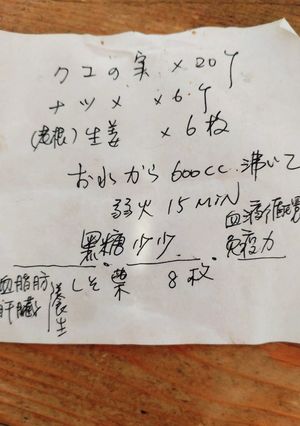 クコの実 ×20ケ
ナツメ ×6ケ
(老根)生姜 ×6枚
お水から600cc.沸いて
弱火15MIN
黒糖少少.
免疫力
しそ葉 8枚
血脂肪
肝臓
養生